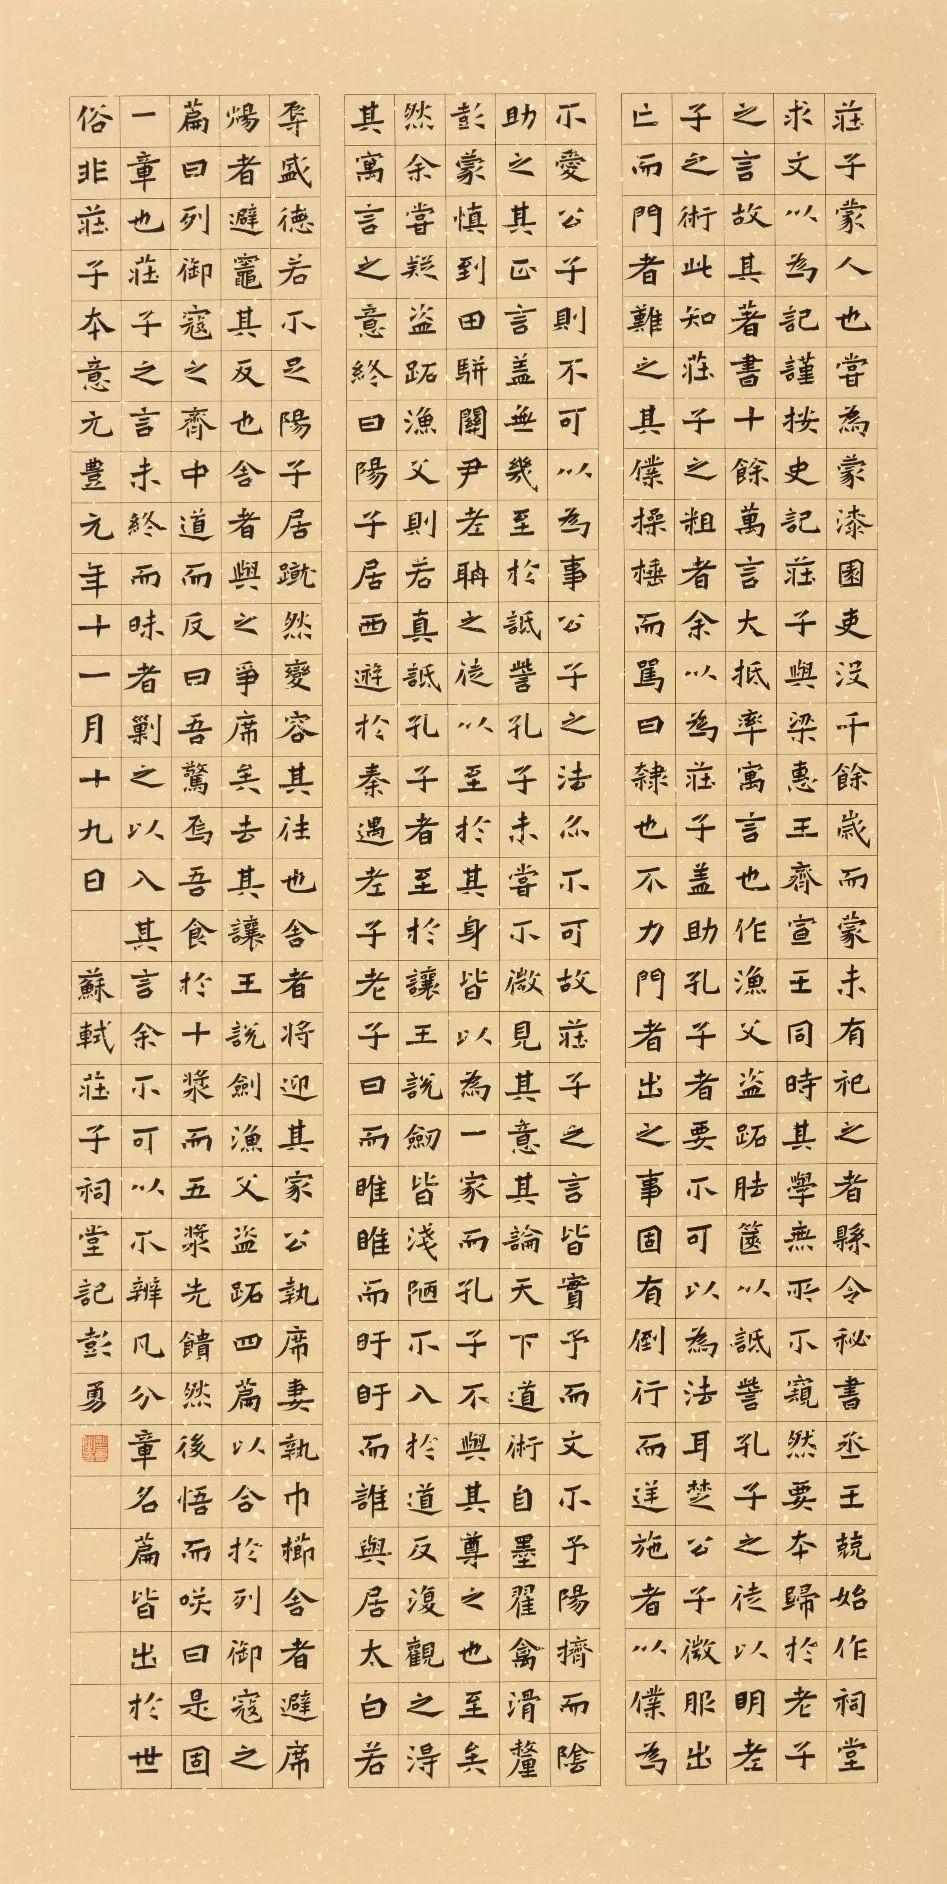 莊子蒙人也嘗為蒙漆園吏沒千餘歲而蒙未有祀之者縣令秘書丞王兢始作祠堂
求文以為記謹按史記莊子與梁惠王齊宣王同時其學無所不窺然要本歸於老子
之言故其著書十餘萬言大抵率寓言也作漁父盜跖胠篋以詆訾孔子之徒以明老
子之術此知莊子之粗者余以為莊子蓋助孔子者要不可以為法耳楚公子微服出
亡而門者難之其僕操棰而罵曰隸也不力門者出之事固有倒行而逆施者以僕為
不愛公子則不可以為事公子之法亦不可故莊子之言皆實予而文不予陽擠而陰
助之其正言蓋無幾至於詆訾孔子未嘗不微見其意其論天下道術自墨翟禽滑釐
彭蒙慎到田駢關尹老聃之徒以至於其身皆以為一家而孔子不與其尊之也至矣
然余嘗疑盜跖漁父則若真詆孔子者至於讓王說劍皆淺陋不入於道反復觀之得
其寓言之意終曰陽子居西遊於秦遇老子老子曰而睢睢而盱盱而誰與居太白若
辱盛德若不足陽子居蹴然變容其往也舍者將迎其家公執席妻執巾櫛舍者避席
煬者避竈其反也舍者與之爭席矣去其讓王說劍漁父盜跖四篇以合於列御寇之
篇曰列御寇之齊中道而反曰吾驚焉吾食於十漿而五漿先饋然後悟而咲曰是固
一章也莊子之言未終而昧者剿之以入其言余不可以不辨凡分章名篇皆出於世
俗非莊子本意元豐元年十一月十九日 蘇軾莊子祠堂記彭勇